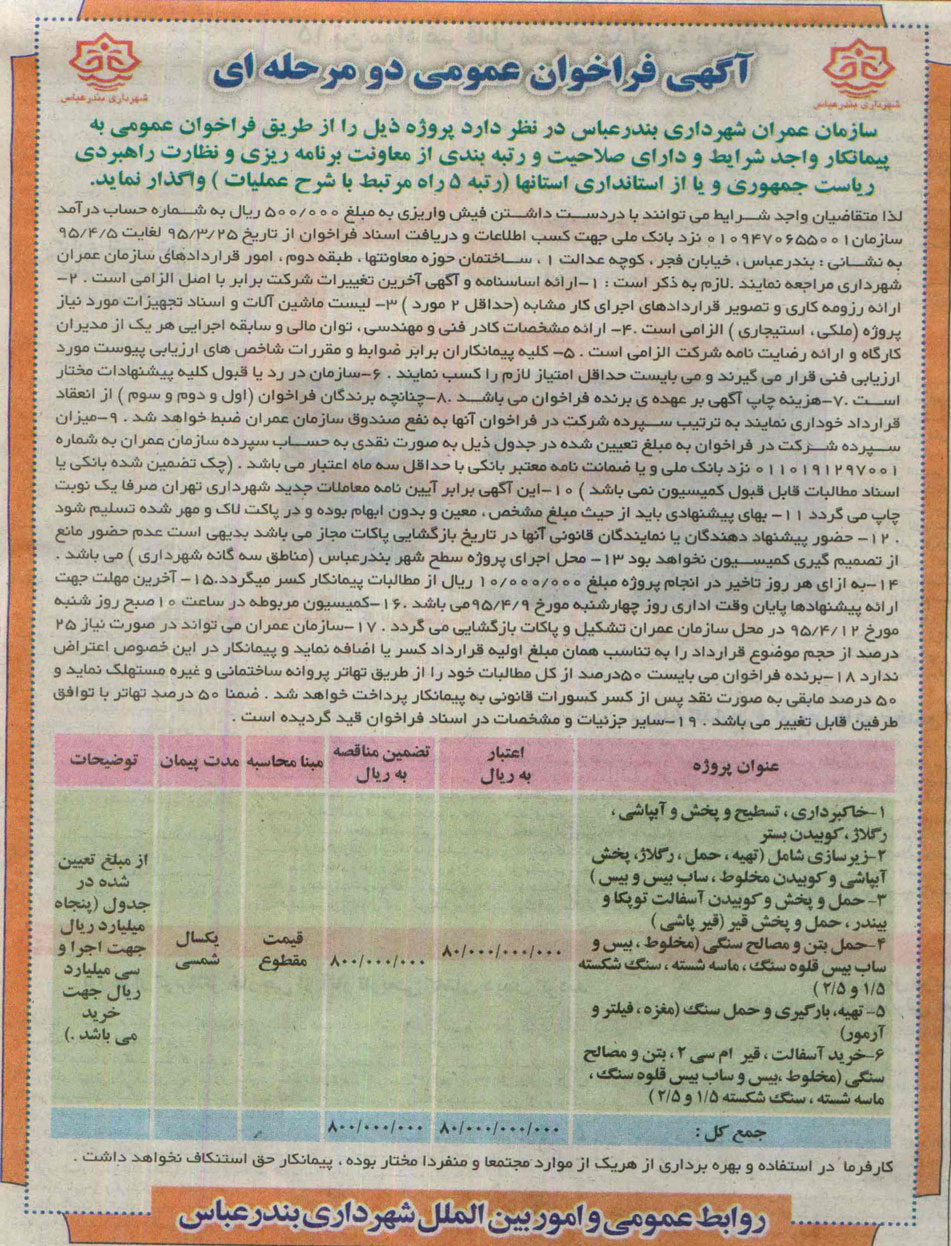 آگهی فراخوان عمومی دو مرحله ای
شهرداری بندرعباس
شهرداری بندرعباس
سازمان عمران شهرداری بندرعباس در نظر دارد پروژه ذیل را از طریق فراخوان عمومی به
پیمانکار واجد شرایط و دارای صلاحیت و رتبه بندی از معاونت برنامه ریزی و نظارت راهبردی
ریاست جمهوری و یا از استانداری استانها (رتبه ۵ راه مرتبط با شرح عملیات ) واگذار نماید.
لذا متقاضیان واجد شرایط می توانند با دردست داشتن فیش واریزی به مبلغ ۵۰۰/۰۰۰ ریال به شماره حساب درآمد
سازمان۰۱۰۹۴۷۰۶۵۵۰۰۱ نزد بانک ملی جهت کسب اطلاعات و دریافت اسناد فراخوان از تاریخ ۹۵/۳/۲۵ لغایت ۹۵/۴/۵
به نشانی : بندرعباس ، خیابان فجر ، کوچه عدالت ۱ ، ساختمان حوزه معاونتها ، طبقه دوم ، امور قراردادهای سازمان عمران
شهرداری مراجعه نمایند .لازم به ذکر است : ۱-ارائه اساسنامه و آگهی آخرین تغییرات شرکت برابر با اصل الزامی است . ۲-
ارائه رزومه کاری و تصویر قراردادهای اجرای کار مشابه (حداقل ۲ مورد ) ۳- لیست ماشین آلات و اسناد تجهیزات مورد نیاز
پروژه (ملکی ، استیجاری ) الزامی است .۴- ارائه مشخصات کادر فنی و مهندسی ، توان مالی و سابقه اجرایی هر یک از مدیران
کارگاه و ارائه رضایت نامه شرکت الزامی است . ۵- کلیه پیمانکاران برابر ضوابط و مقررات شاخص های ارزیابی پیوست مورد
ارزیابی فنی قرار می گیرند و می بایست حداقل امتیاز لازم را کسب نمایند . ۶-سازمان در رد یا قبول کلیه پیشنهادات مختار
است .۷-هزینه چاپ آگهی بر عهده ی برنده فراخوان می باشد .۸-چنانچه برندگان فراخوان (اول و دوم و سوم ) از انعقاد
قرارداد خودداری نمایند به ترتیب سپرده شرکت در فراخوان آنها به نفع صندوق سازمان عمران ضبط خواهد شد . ۹-میزان
سپرده شرکت در فراخوان به مبلغ تعیین شده در جدول ذیل به صورت نقدی به حساب سپرده سازمان عمران به شماره
۰۱۱۰۱۹۱۲۹۷۰۰۱ نزد بانک ملی و یا ضمانت نامه معتبر بانکی با حداقل سه ماه اعتبار می باشد . (چک تضمین شده بانکی یا
اسناد مطالبات قابل قبول کمیسیون نمی باشد ) ۱۰-این آگهی برابر آیین نامه معاملات جدید شهرداری تهران صرفا یک نوبت
چاپ می گردد ۱۱- بهای پیشنهادی باید از حیث مبلغ مشخص ، معین و بدون ابهام بوده و در پاکت لاک و مهر شده تسلیم شود
. ۱۲- حضور پیشنهاد دهندگان یا نمایندگان قانونی آنها در تاریخ بازگشایی پاکات مجاز می باشد بدیهی است عدم حضور مانع
از تصمیم گیری کمیسیون نخواهد بود ۱۳- محل اجرای پروژه سطح شهر بندرعباس (مناطق سه گانه شهرداری ) می باشد .
۱۴-به ازای هر روز تاخیر در انجام پروژه مبلغ ۱۰/۰۰۰/۰۰۰ ریال از مطالبات پیمانکار کسر میگردد.۱۵- آخرین مهلت جهت
ارائه پیشنهادها پایان وقت اداری روز چهارشنبه مورخ ۹۵/۴/۹می باشد .۱۶-کمیسیون مربوطه در ساعت ۱۰صبح روز شنبه
مورخ ۹۵/۴/۱۲ در محل سازمان عمران تشکیل و پاکات بازگشایی می گردد . ۱۷-سازمان عمران می تواند در صورت نیاز ۲۵
درصد از حجم موضوع قرارداد را به تناسب همان مبلغ اولیه قرارداد کسر یا اضافه نماید و پیمانکار در این خصوص اعتراض
ندارد ۱۸-برنده فراخوان می بایست ۵۰درصد از کل مطالبات خود را از طریق تهاتر پروانه ساختمانی و غیره مستهلک نماید و
۵۰ درصد مابقی به صورت نقد پس از کسر کسورات قانونی به پیمانکار پرداخت خواهد شد . ضمنا ۵۰ درصد تهاتر با توافق
طرفین قابل تغییر می باشد . ۱۹-سایر جزئیات و مشخصات در اسناد فراخوان قید گردیده است .
عنوان پروژه
اعتبار
به ریال
تضمین مناقصه
به ریال
مبنا محاسبه
مدت پیمان
توضیحات
۱-خاکبرداری ، تسطیح و پخش و آبپاشی ،
رگلاژ ، کوبیدن بستر
۲-زیرسازی شامل (تهیه ، حمل ، رگلاژ، پخش
آبپاشی و کوبیدن مخلوط ، ساب بیس و بیس )
۳-حمل و پخش و کوبیدن آسفالت توپکا و
بیندر ، حمل و پخش قیر (قیر پاشی )
۴-حمل بتن و مصالح سنگی (مخلوط ، بیس و
ساب بیس قلوه سنگ ، ماسه شسته ، سنگ شکسته
۱/۵ و ۲/۵ )
۵- تهیه، بارگیری و حمل سنگ (مغزه ، فیلتر و
آرمور)
۶-خرید آسفالت ، قیر ام سی ۲ ، بتن و مصالح
سنگی (مخلوط ،بیس و ساب بیس قلوه سنگ ،
ماسه شسته ، سنگ شکسته ۱/۵ و ۲/۵ )
۸۰/۰۰۰/۰۰۰/۰۰۰
۸۰۰/۰۰۰/۰۰۰
قیمت
مقطوع
یکسال
شمسی
از مبلغ تعیین
شده در
جدول (پنجاه
میلیارد ریال
جهت اجرا و
سی میلیارد
ریال جهت
خرید
می باشد .)
جمع کل :
۸۰/۰۰۰/۰۰۰/۰۰۰
۸۰۰/۰۰۰/۰۰۰
کارفرما در استفاده و بهره برداری از هریک از موارد مجتمعا و منفردا مختار بوده ، پیمانکار حق استنکاف نخواهد داشت .
روابط عمومی و امور بین الملل شهرداری بندرعباس